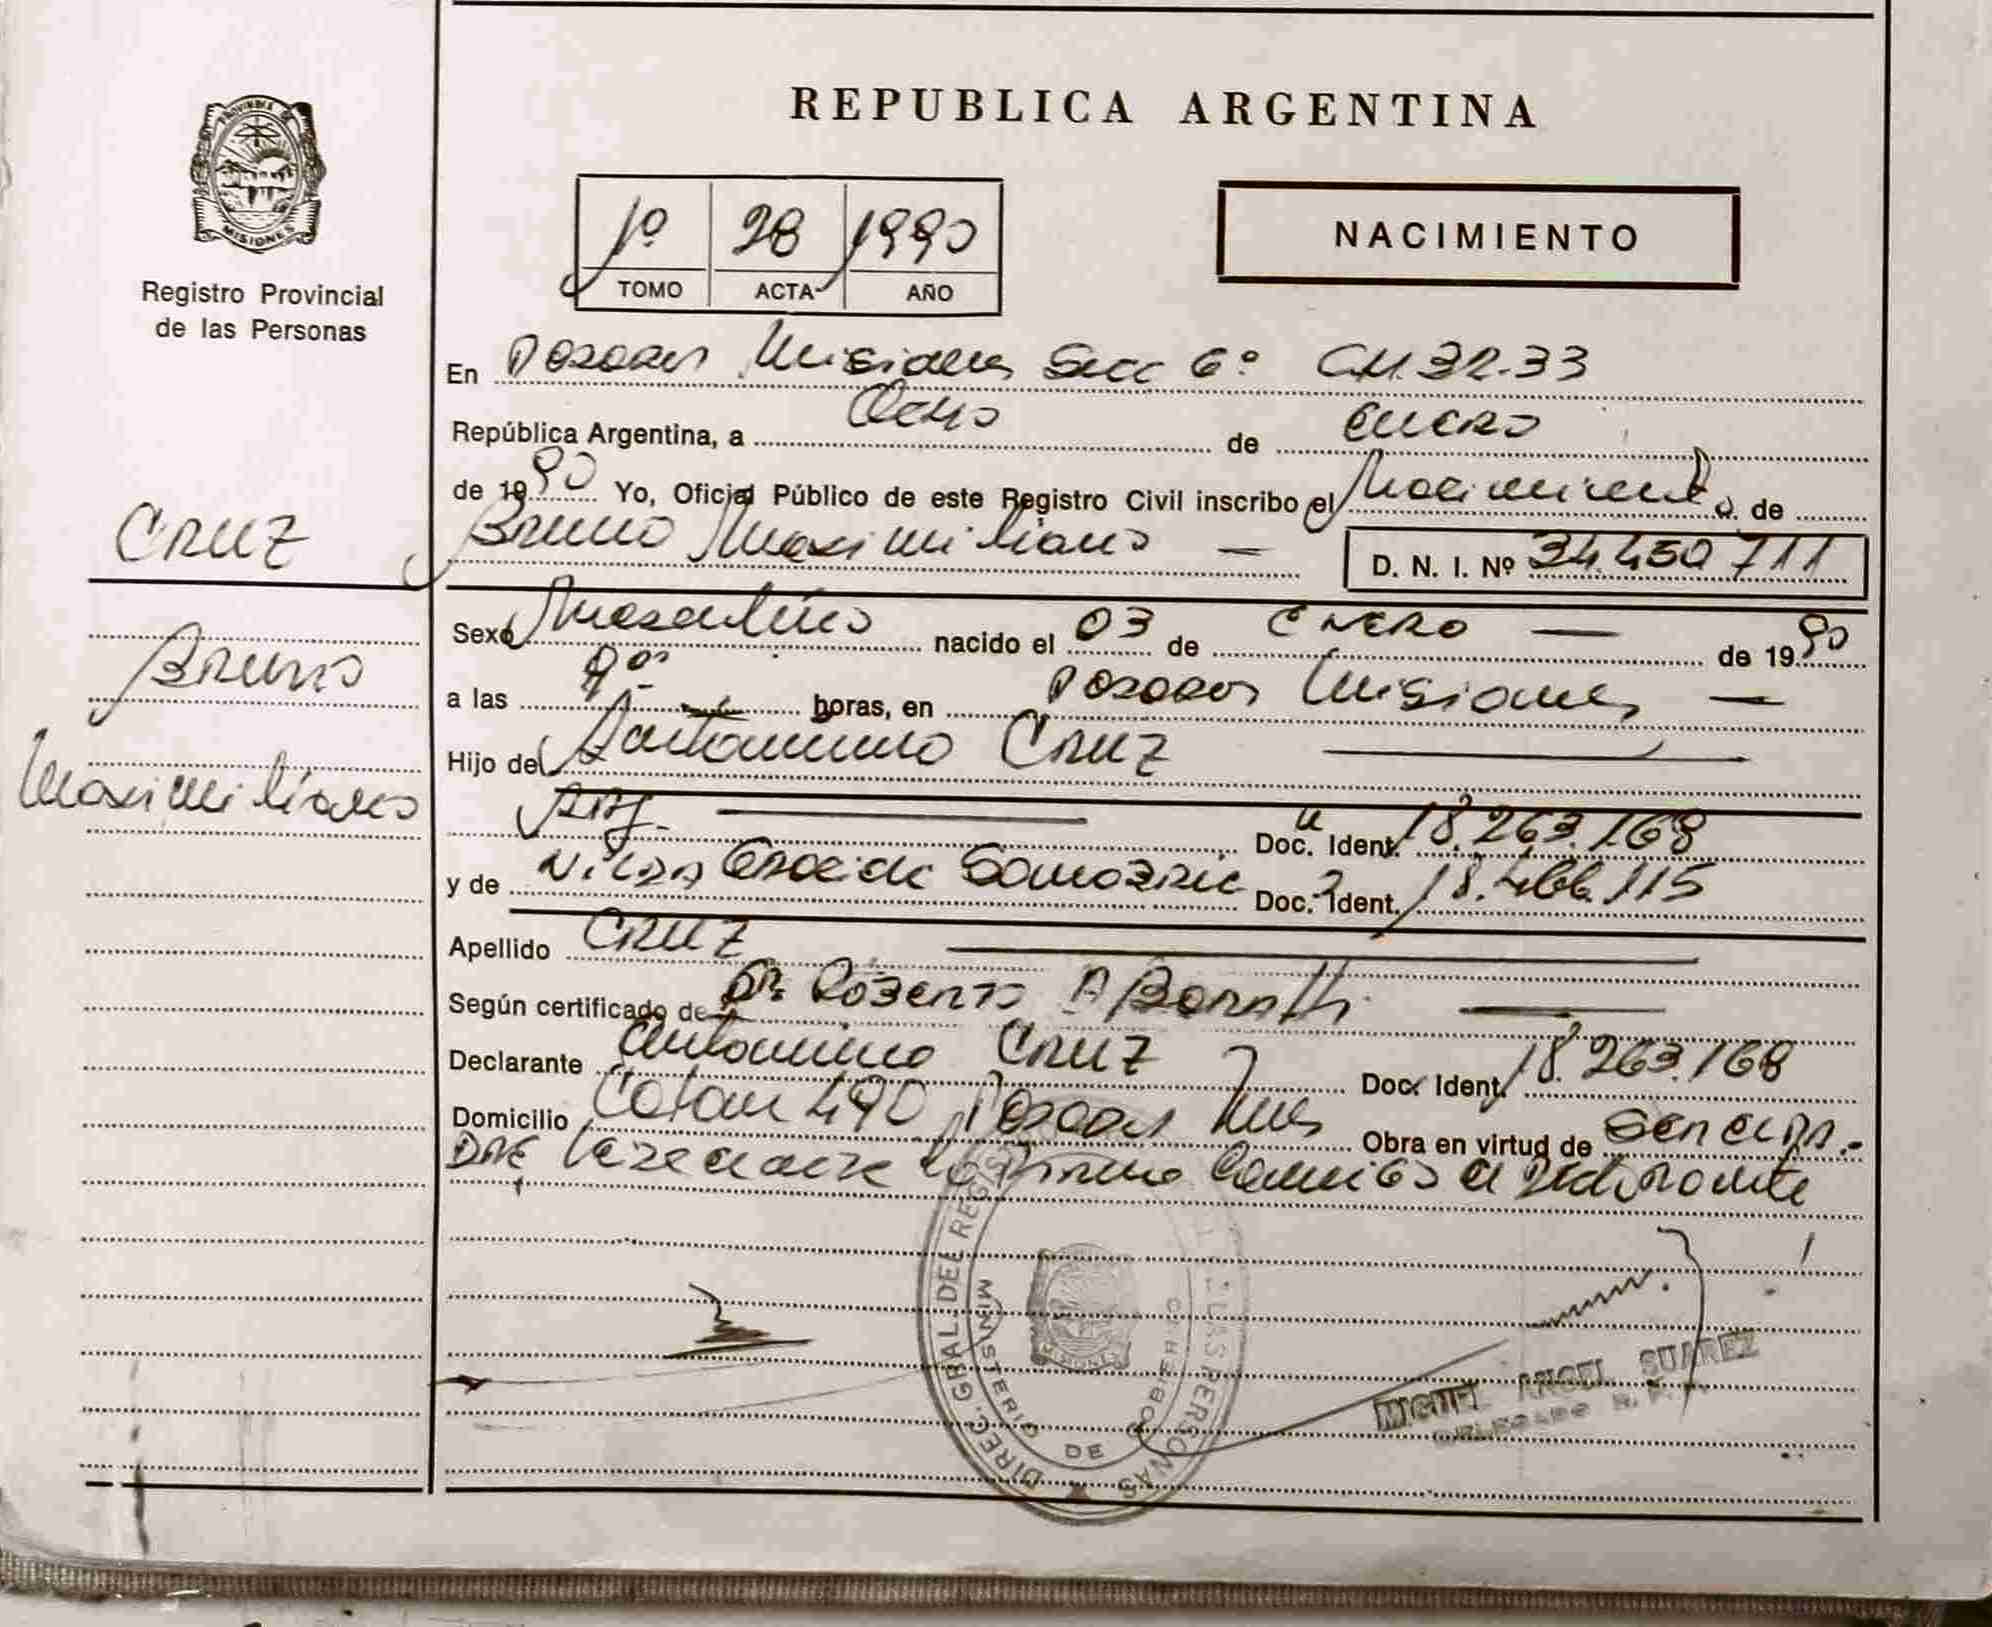 PROVINCIA DE
MISIONES
Registro Provincial
de las Personas
REPUBLICA ARGENTINA
1º 28 1990
TOMO ACTA AÑO
NACIMIENTO
En Posadas Misiones Secc 6º C.M. 32.33
República Argentina, a Ocho de enero
de 1990 Yo, Oficial Público de este Registro Civil inscribo el Nacimiento de
CRUZ
Bruno Maximiliano — D. N. I. Nº 34.450 711
Bruno
Maximiliano
Sexo Masculino nacido el 03 de ENERO — de 1990
a las horas, en Posadas Misiones —
Hijo de Antonino CRUZ
Arg. Doc. Ident. 18.263.168
y de Nilda Doc. Ident. 18.466.115
Apellido CRUZ
Según certificado de Dr Roberto A
Declarante Antonino CRUZ Doc. Ident. 18.263.168
Domicilio 490 Posadas Mnes Obra en virtud de
el declarante
DIREC. GRAL. DEL REGIST LAS PERSONAS
MINISTERIO DE GOBIERNO
MIGUEL ANGEL SUAREZ
DELEGADO R. P.